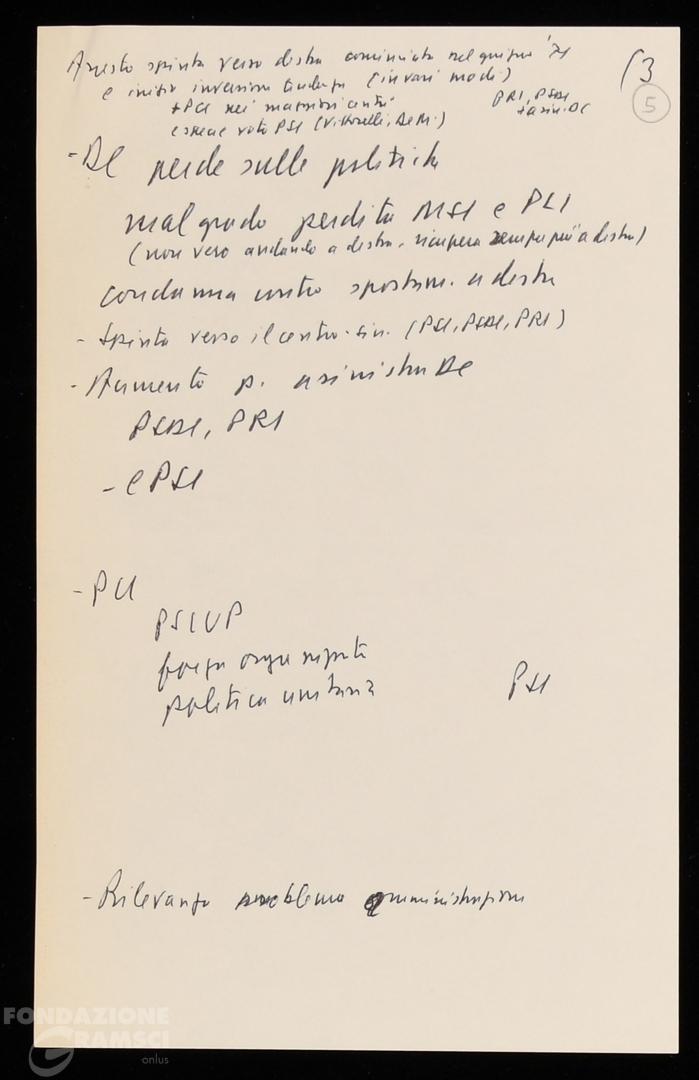 Arresto spinta verso destra cominciata nel giugno '71
e inizio inversione tendenza (in vari modi)
+ PCI nei maggiori centri
e specie voto PSI (Vittorelli, De M.)
PRI, PSDI
+ a sin. DC
(3
5
- DC perde sulle politiche
malgrado perdita MSI e PLI
(non vero andando a destra, recupera sempre più a destra)
condanna contro spostam. a destra
- Spinta verso il centro-sin. (PSI, PSDI, PRI)
- Aumento p. a sinistra DC
PSDI, PRI
- e PSI
- PCI
PSIUP
forza organizzata
politica unitaria
PSI
- Rilevanza problema amministrazione
FONDAZIONE
GRAMSCI
onlus